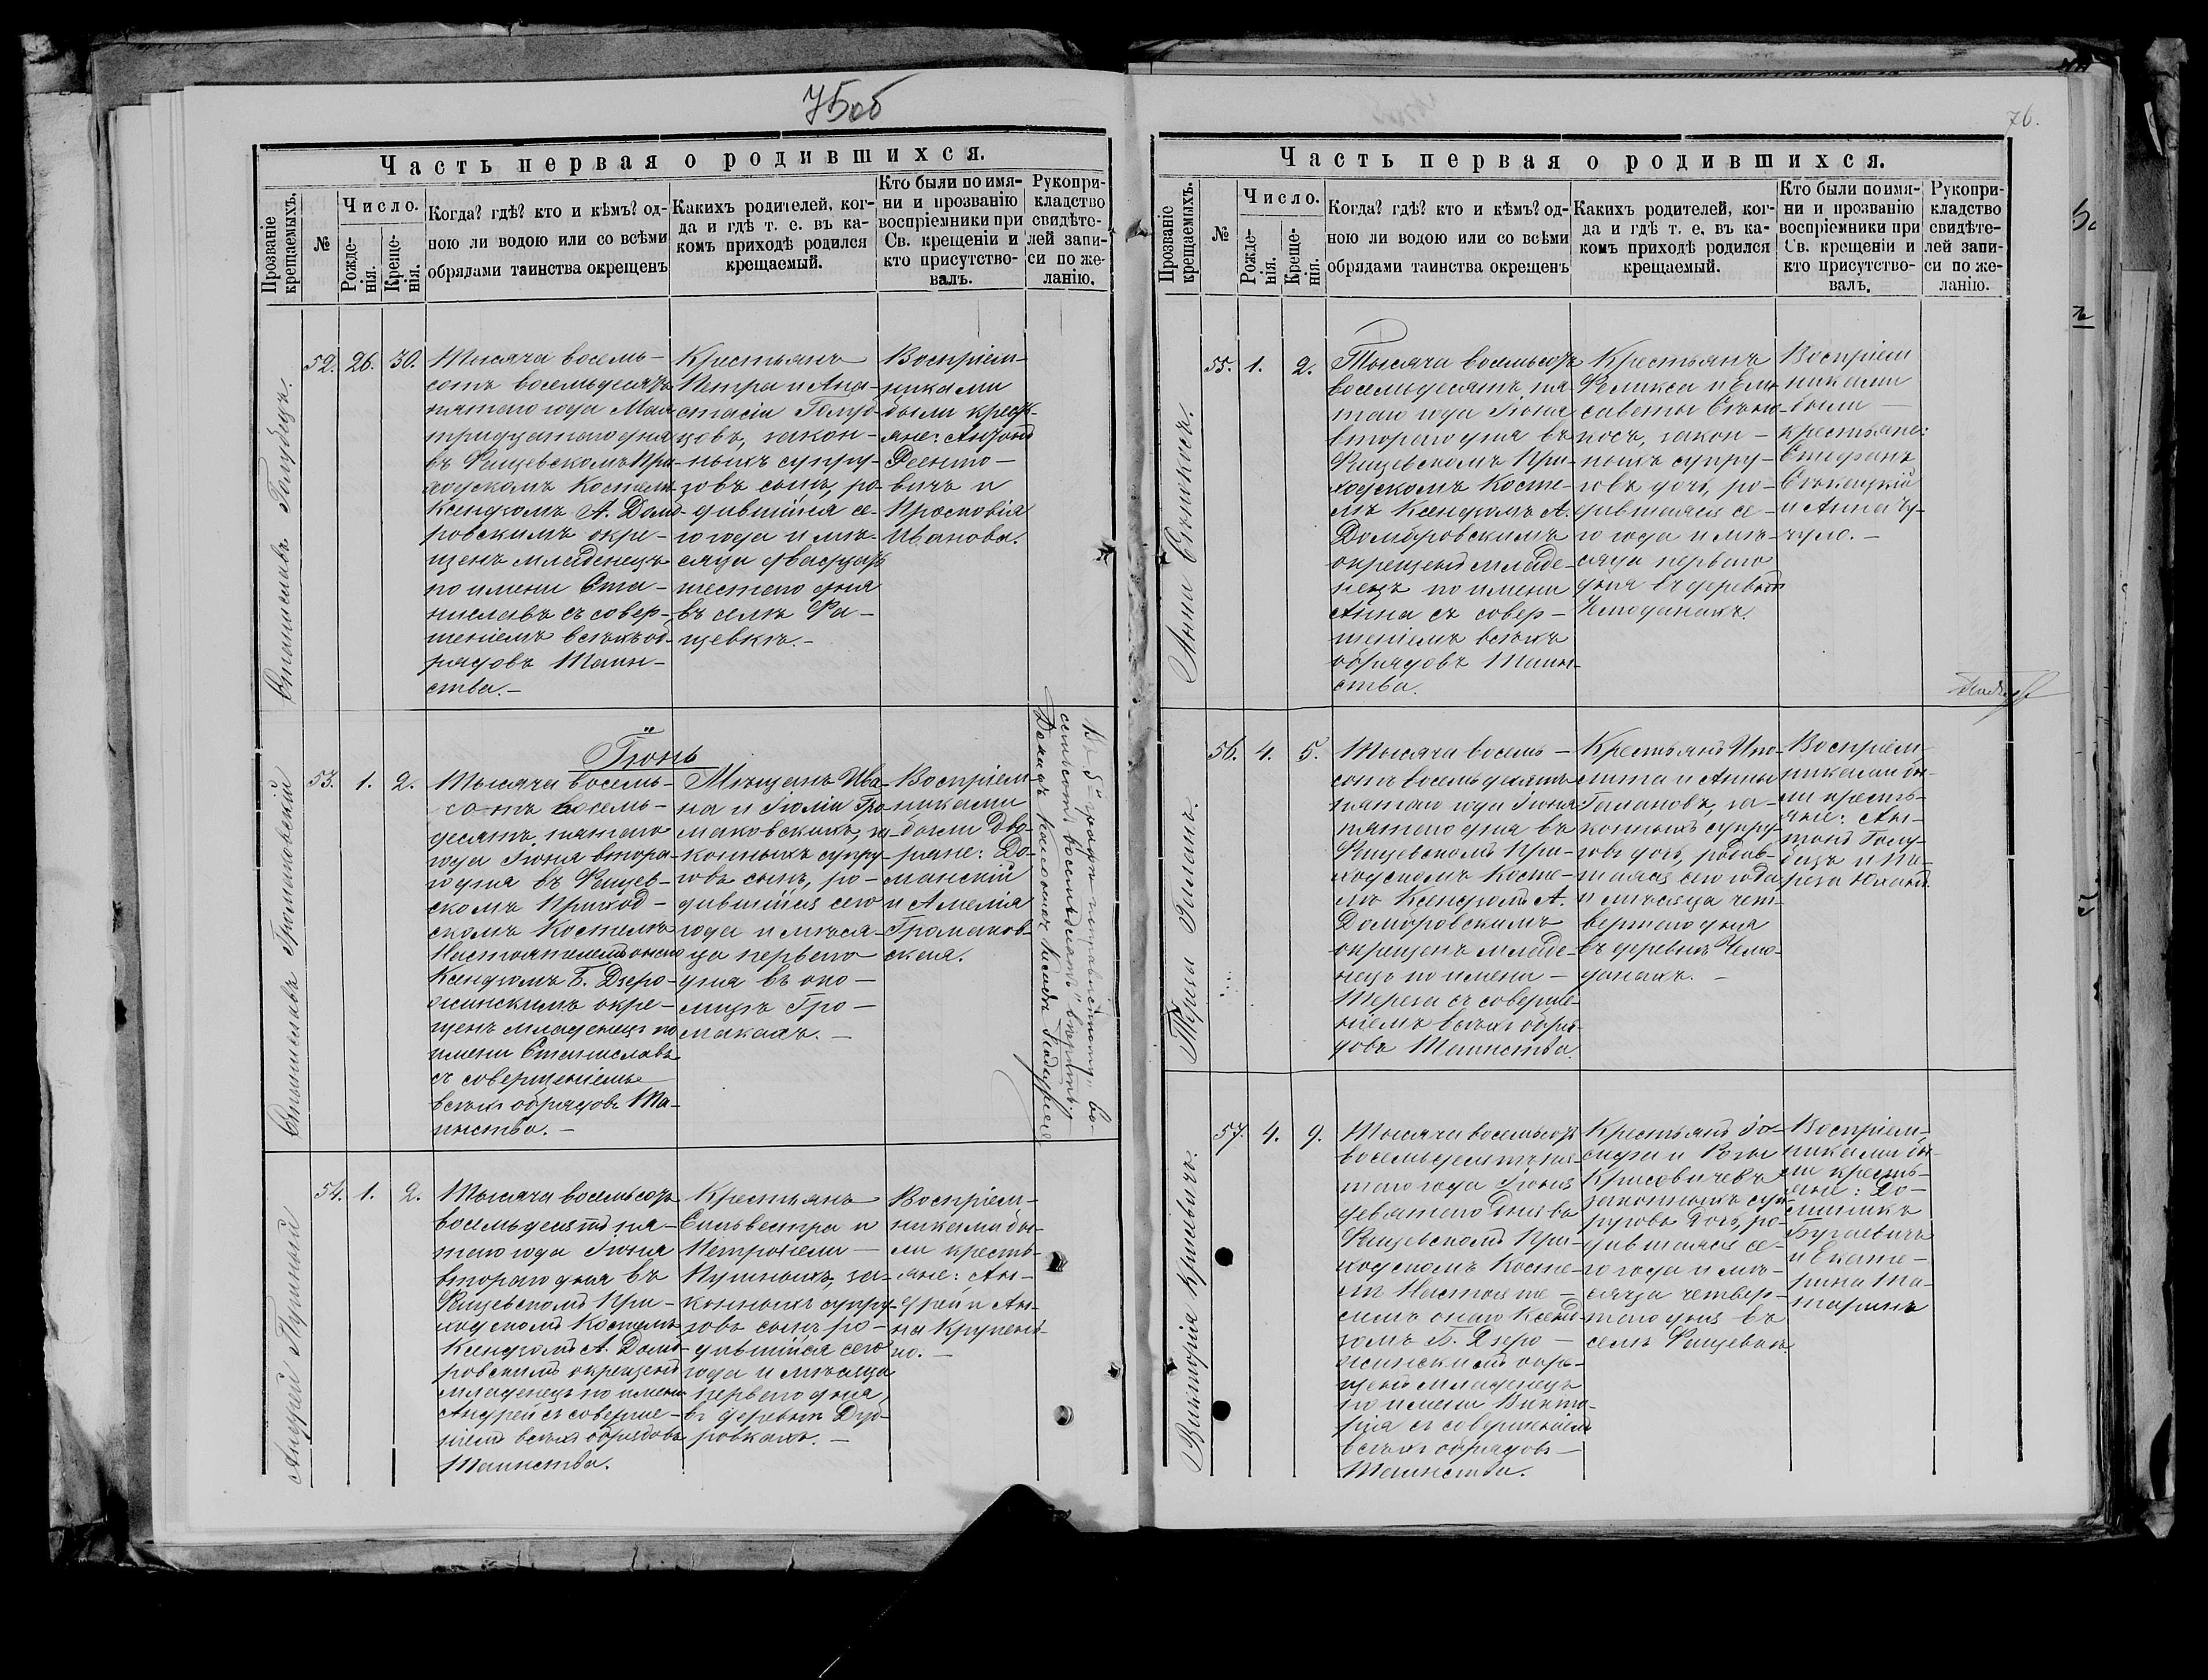 75об
Часть первая о родившихся.
Прозваніе крещаемыхъ.
№
Число.
Рожде-
нія.
Креще-
нія.
Когда? гдѣ? кто и кѣмъ? од-
ною ли водою или со всѣми
обрядами таинства окрещенъ
Какихъ родителей, ког-
да и гдѣ т. е. въ ка-
комъ приходѣ родился
крещаемый.
Кто были по имя-
ни и прозванію
воспріемники при
Св. крещеніи и
кто присутство-
валъ.
Рукопри-
кладство
свидѣте-
лей запи-
си по же-
ланію.
Станиславъ Голубецъ.
52. 26. 30.
Тысяча восемь-
сотъ восемьдесятъ
пятаго года Мая
тридцатаго дня
въ Фащевскомъ При-
ходскомъ Костелѣ
Ксендзомъ А. Домб-
ровскимъ окре-
щенъ младенецъ
по имени Ста-
ниславъ съ совер-
шеніемъ всѣхъ об-
рядовъ Таин-
ства.-
Крестьянъ
Петра и Ана-
стасіи Голуб-
цовъ, закон-
ныхъ супру-
говъ сынъ, ро-
дившійся се-
го года и мѣ-
сяца двадцать
шестаго дня
въ селѣ Фа-
щевкѣ.-
Воспріем-
никами
были крестъ-
яне: Антонъ
вичъ и
Просковія
Иванова.
Іюнь
Станиславъ Громаковскій
53. 1. 2.
Тысяча восемь-
сотъ восемь-
десятъ пятаго
года Іюня втора-
го дня въ Фащев-
скомъ Приход-
скомъ Костелѣ
Настоятелемъ онаго
Ксендзомъ Б. Дзеро-
жинскимъ окре-
щенъ младенецъ по
имени Станиславъ
съ совершеніемъ
всѣхъ обрядовъ Та-
инства.-
Мѣщанъ Ива-
на и Юліи Гро-
маковскихъ, за-
конныхъ супру-
говъ сынъ, ро-
дившійся сего
года и мѣся-
ца перваго
дня въ око-
лицѣ Гро-
макахъ.-
Воспріем-
никами
были Дво-
ряне: До-
манскій
и Амелія
Громаков-
ская.
Въ 5й графѣ исправленному "во-
семьсотъ восемьдесятъ" вѣрить.
Андрей Пушный
54. 1. 2.
Тысяча восемьсотъ
восемьдесятъ пя-
таго года Іюня
втораго дня въ
Фащевскомъ При-
ходскомъ Костелѣ
Ксендзомъ А. Домб-
ровскимъ окрещенъ
младенецъ по имени
Андрей съ соверше-
ніемъ всѣхъ обрядовъ
Таинства.
Крестьянъ
Сильвестра и
Петронели-
Пушныхъ, за-
конныхъ супру-
говъ сынъ, ро-
дившійся сего
года и мѣсяца
перваго дня
въ деревнѣ Дуб-
ровкахъ.-
Воспріем-
никами бы-
ли кресть-
яне: Ан-
дрей и Ан-
на Крупень-
ко.-
76.
Часть первая о родившихся.
Прозваніе крещаемыхъ.
№
Число.
Рожде-
нія.
Креще-
нія.
Когда? гдѣ? кто и кѣмъ? од-
ною ли водою или со всѣми
обрядами таинства окрещенъ
Какихъ родителей, ког-
да и гдѣ т. е. въ ка-
комъ приходѣ родился
крещаемый.
Кто были по имя-
ни и прозванію
воспріемники при
Св. крещеніи и
кто присутство-
валъ.
Рукопри-
кладство
свидѣте-
лей запи-
си по же-
ланію.
Анна Сѣнокосъ.
55. 1. 2.
Тысяча восемьсотъ
восемьдесятъ пя-
таго года Іюня
втораго дня въ
Фащевскомъ При-
ходскомъ Косте-
лѣ Ксендзомъ А.
Домбровскимъ
окрещенъ младе-
нецъ по имени
Анна съ совер-
шеніемъ всѣхъ
обрядовъ Таин-
ства.
Крестьянъ
Феликса и Ели-
саветы Сѣно-
косъ, закон-
ныхъ супру-
говъ дочь, ро-
дившаяся се-
го года и мѣ-
сяца перваго
дня въ деревнѣ
Чемоданахъ.
Воспріем
никами
были-
крестьяне:
Стефанъ
и Анна
56. 4. 5.
Тысяча восемь-
сотъ восемьдесятъ
пятаго года Іюня
пятаго дня въ
Фащевскомъ При-
ходскомъ Косте-
лѣ Ксендзомъ А.
Домбровскимъ
окрещенъ младе-
нецъ по имени-
Тереза съ соверше-
ніемъ всѣхъ обря-
довъ Таинства.
Крестьянъ Ипо-
лита и Анны
законныхъ супру-
говъ дочь, родив-
шаяся сего года
и мѣсяца чет-
вертаго дня
въ деревнѣ Чемо-
данахъ.-
Воспріем-
никами бы-
ли кресть-
яне: Ан-
тонъ Голу-
бецъ и Те-
реза
Викторія Крисевичъ.
57. 4. 9.
Тысяча восемьсотъ
восемьдесятъ пя-
таго года Іюня
девятаго Дня въ
Фащевскомъ При-
ходскомъ Косте-
лѣ Настояте-
лемъ онаго Ксенд-
зомъ Б. Дзеро-
жинскимъ окре-
щенъ младенецъ
по имени Викто-
рія съ совершеніемъ
всѣхъ обрядовъ-
Таинства.
Крестьянъ Іо-
сифа и Розы
Крисевичевъ
законныхъ суп-
руговъ дочь, ро-
дившаяся се-
го года и мѣ-
сяца четвер-
таго дня въ
селѣ Фащевкѣ.
Воспріем-
никами бы-
ли кресть-
яне: До-
миникъ
и Екате-
рина Та-
таринъ